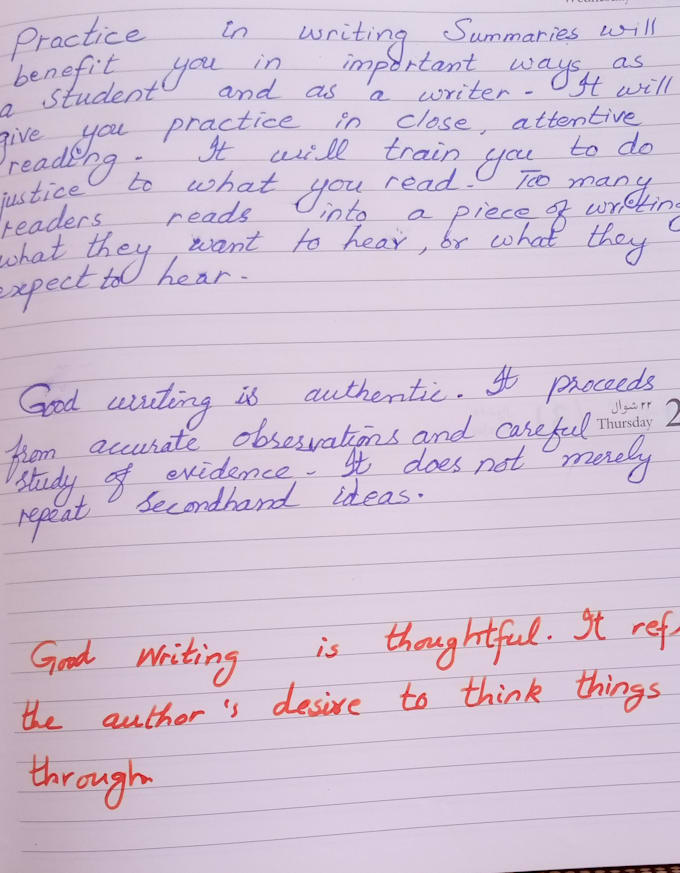 Practice in writing Summaries will
benefit you in important ways as
a student and as a writer - It will
give you practice in close, attentive
reading. It will train you to do
justice to what you read. Too many
readers reads into a piece of writing
what they want to hear, or what they
expect to hear.
Good writing is authentic. It proceeds
٢٢ شوال
Thursday 2
from accurate observations and careful
study of evidence. It does not merely
repeat secondhand ideas.
Good Writing is thoughtful. It ref
the author's desire to think things
through